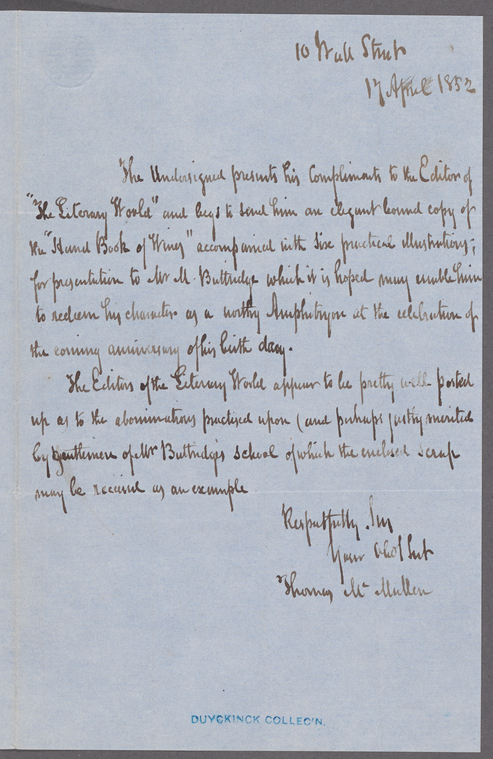 10 Wall Street
17 April 1852
The Undersigned presents his compliments to the Editor of
"The Literary World" and begs to send him an elegant bound copy of
the "Hand Book of Wines" accompanied with six practical illustrations;
for presentation to Mr M. Buttridge which it is hoped may enable him
to redeem his character as a worthy Amphitryon at the celebration of
the coming anniversary of his birth day.
The Editors of the Literary World appear to be pretty well posted
up as to the abominations practised upon (and perhaps justly merited
by gentlemen of Mr Buttridge's school of which the enclosed scrap
may be received as an example
Respectfully Sir
Your Obdt Svt
Thomas McMullen
DUYCKINCK COLLEC'N.